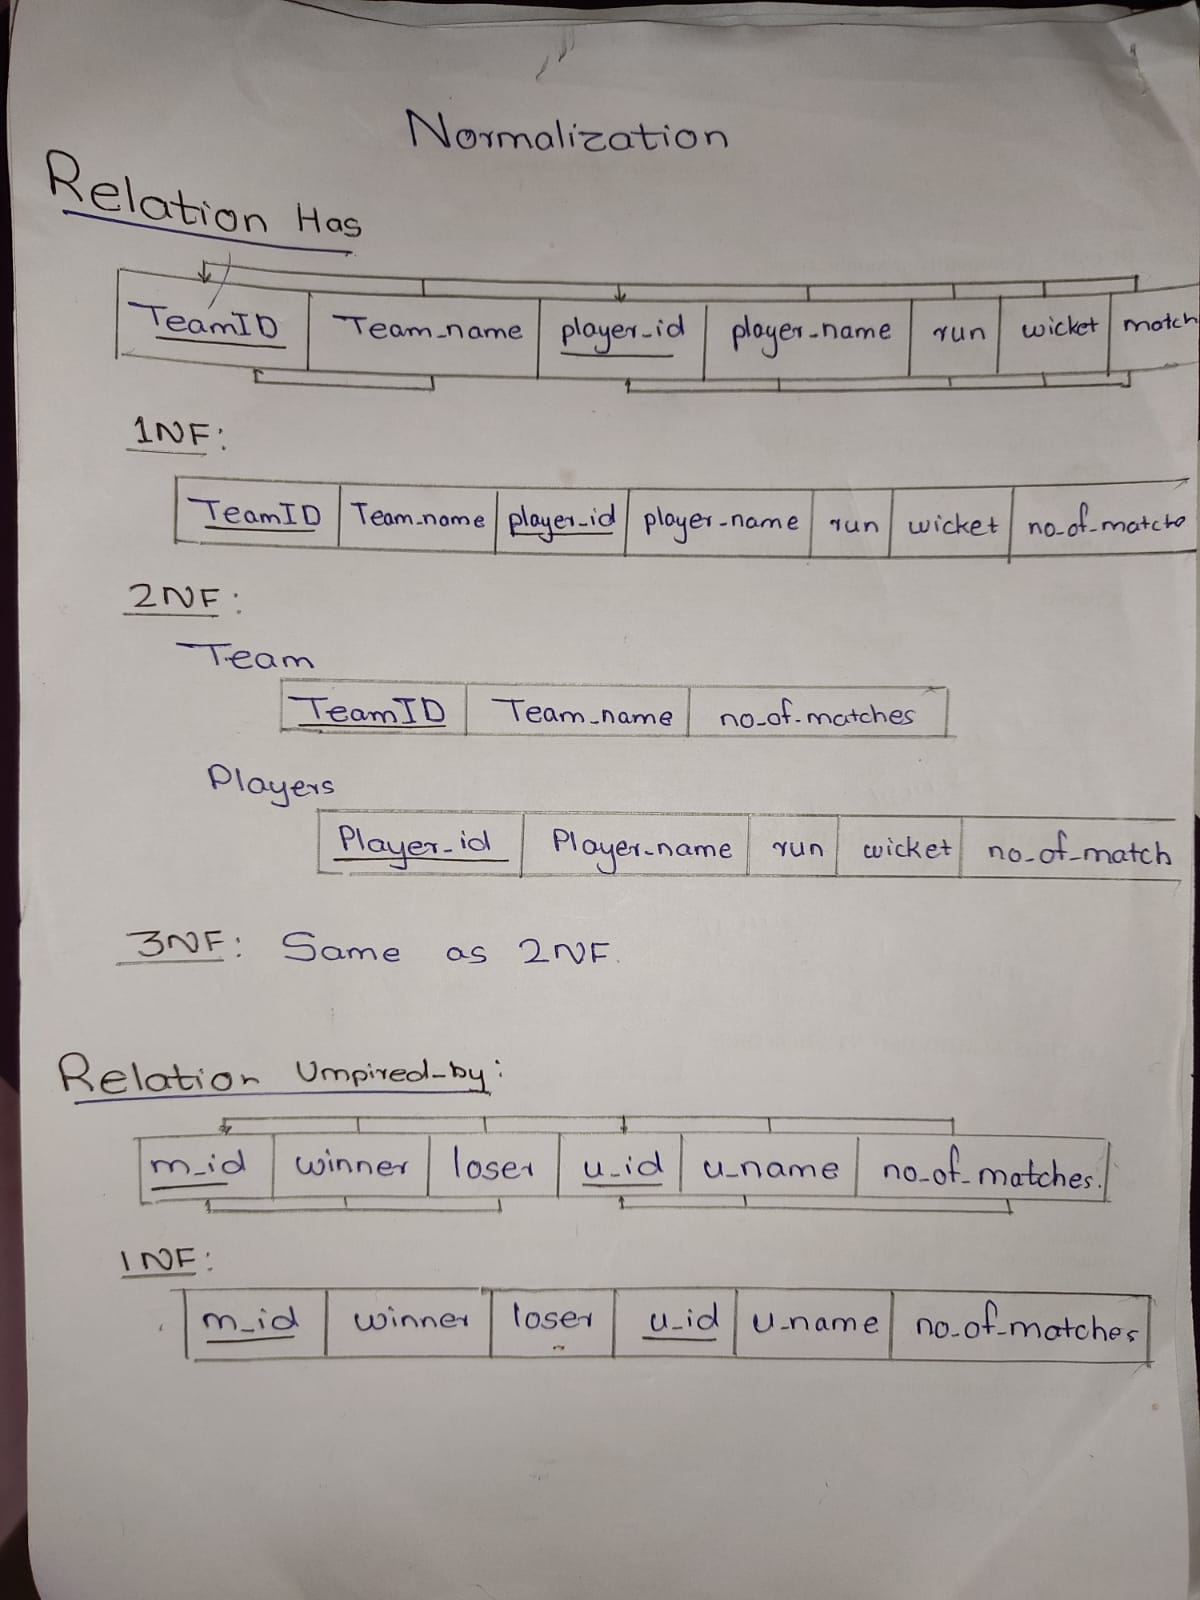 Normalization
Relation Has
TeamID Team_name player_id player_name run wicket match
1NF:
TeamID Team_name player_id player_name run wicket no_of_matche
2NF:
Team
TeamID Team_name no_of_matches
Players
Player_id Player_name run wicket no_of_match
3NF: Same as 2NF.
Relation Umpired_by:
m_id winner loser u_id u_name no_of_matches.
1NF:
m_id winner loser u_id u_name no_of_matches